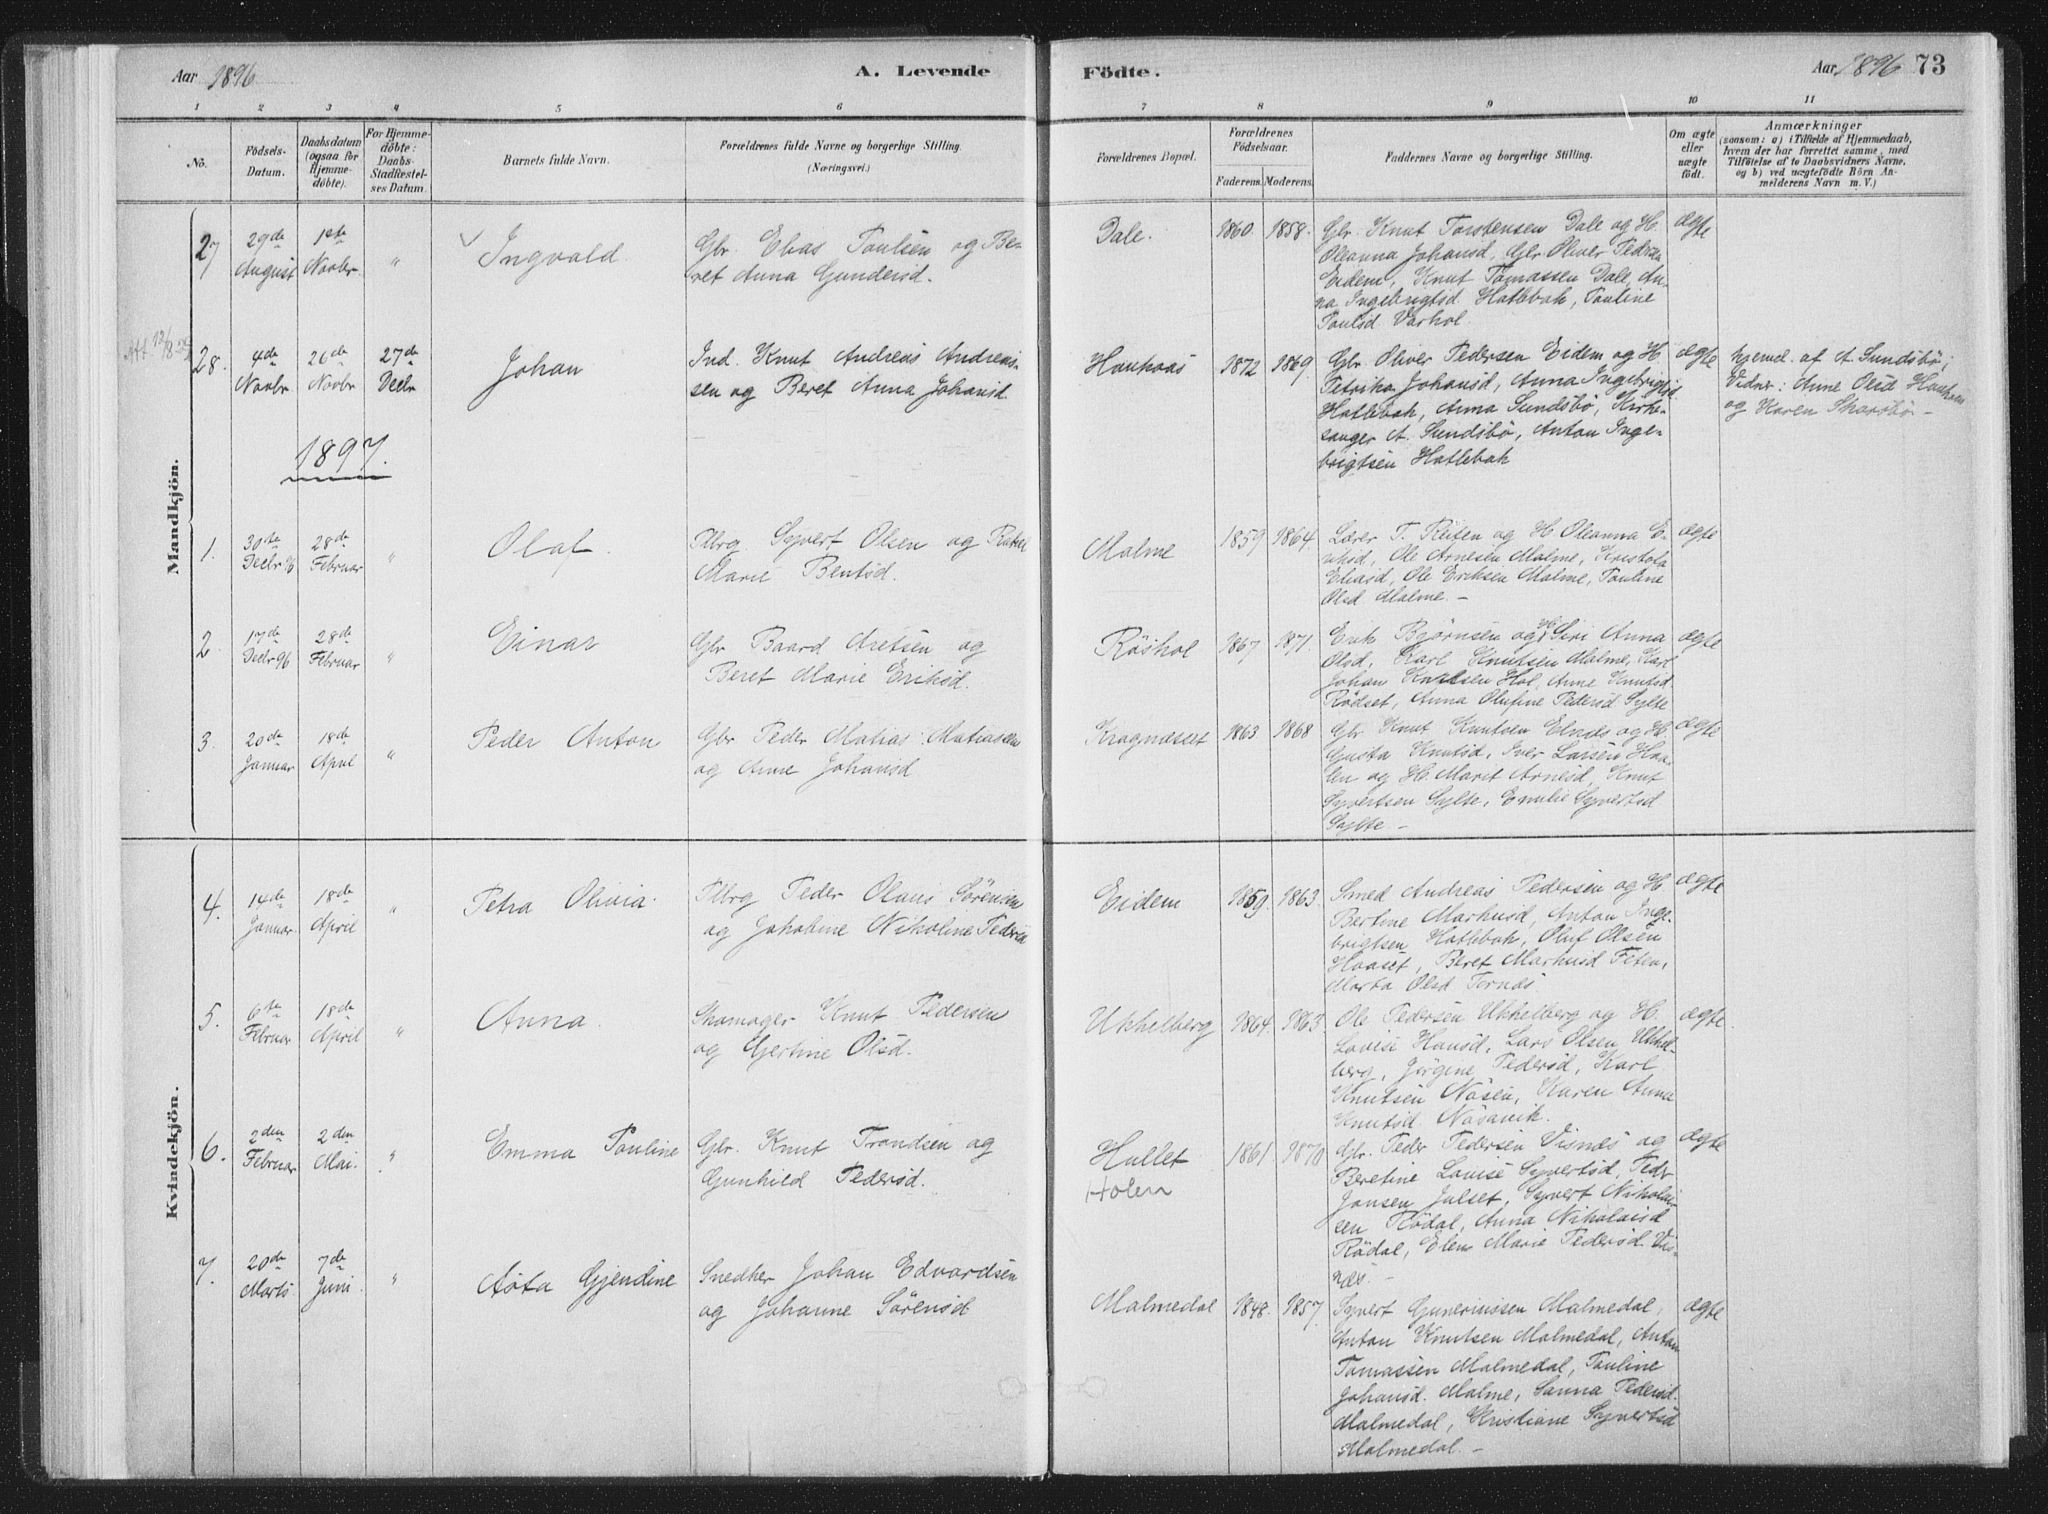 Aar 1896
A. Levende
Födte.
Aar 1896 73
1 2 3 4 5 6 7 8 9 10 11
No.
Födsels-Datum.
Daabsdatum (ogsaa for Hjemmedöbte).
For Hjemmedöbte: Daabs-Stadfæstelses Datum.
Barnets fulde Navn.
Forældrenes fulde Navne og borgerlige Stilling.
(Næringsvei.)
Forældrenes Bopæl.
Forældrenes Födselsaar.
Faderens. Moderens.
Faddernes Navne og borgerlige Stilling.
Om ægte eller uægte födt.
Anmærkninger
(saasom: a) i Tilfælde af Hjemmedaab,
hvem der har forrettet samme, med
Tilföielse af to Daabsvidners Navne,
og b) ved uægtefödte Börn Anmelderens Navn m. V.)
Mandkjön.
27 29de August 1ste Novbr. " Ingvald
Gbr. Elias Paulsen og Be-
ret Anna Gundersd.
Dale. 1860. 1858.
Gbr. Knut Torstensen Dale og H.
Oleanna Johansd, Gbr. Oliver Pedersen
Eidem, Knut Tomassen Dale, An-
na Ingebrigtsd. Hatlebak, Pauline
Paulsd. Varhol.
ægte
28. 4de Novbr 26de Novbr 27de Decbr Johan
Ind. Knut Andreas Andreas-
sen og Beret Anna Johansd.
Haukaas 1872 1869.
Gbr. Oliver Pedersen Eidem og H.
Petrika Johansd, Anna Ingebrigtsd
Hatlebak, Anna Sundsbö, Kirke-
sanger A. Sundsbö, Anton Inge-
brigtsen Hatlebak
ægte
hjemmed. af A. Sundsbö;
Vidner: Anne Olsd Haukaas
og Karen Skarsbö. -
1897.
1. 30te Decbr 96 28de Februar " Olaf.
Pllrg Syvert Olsen og Rakel
Marie Bentsd.
Malme 1859 1864.
Lærer T. Reiten og H. Oleanna E-
riksd, Ole Arnesen Malme, Kristola
Eliasd, Ole Eriksen Malme, Pauline
Olsd Malme. -
ægte
2. 17de Decbr 96 28de Februar " Einar
Gbr Baard Aretsen og
Beret Marie Eriksd.
Röshol 1867 1871.
Erik Bjørnsen og H. Siri Anna
Olsd, Karl Knutsen Malme, Karl
Johan Karlsen Hol, Anne Knutsd
Rödset, Anna Olufine Pedersd Sylte
ægte
3. 20de Januar 18de April " Peder Anton
Gbr Peder Matias Matiassen
og Anne Johansd
Kragneset 1863 1868
Gbr. Knut Knutsen Elnæs og H.
Gusta Knutsd, Iver Larsen Haa-
len og H. Marit Arnesd, Knut
Syvertsen Sylte, Emilie Syvertsd
Sylte. -
ægte
Kvindekjön.
4. 14de Januar. 18de April " Petra Olivia.
Pllrg Peder Olaus Sörensen
og Jakobine Nikoline Pedersd
Eidem 1859. 1863.
Smed Andreas Pedersen og H.
Bertine Markusd, Anton Inge-
brigtsen Hatlebak, Oluf Olsen
Haaset, Beret Markusd Eidem,
Marta Olsd Tornes
ægte
5. 6te Februar 18de April " Anna
Skomager Knut Pedersen
og Gjertine Olsd.
Ukkelberg 1864. 1863.
Ole Pedersen Ukkelberg og H.
Lovise Hansd, Lars Olsen Ukkel-
berg, Jörgine Pedersd, Karl
Knutsen Näsen, Karen Anna
Knutsd. Näsavik.
ægte.
6. 2den Februar 2den Mai. " Emma Pauline
Gbr. Knut Trondsen og
Gunhild Pedersd.
Hullet
Holen
1861. 1870
Gbr. Peder Pedersen Visnes og
Beretine Lovise Syvertsd, Peder
Jonsen Julset, Syvert Nikolai-
sen Rödal, Anna Nikolaisd
Rödal, Elen Marie Pedersd. Vis-
næs. -
ægte
7. 20de Marts 7de Juni. " Asta Gjendine
Snedker Johan Edvardsen
og Johanne Sörensd
Malmedal 1848. 1857.
Syvert Gunerinssen Malmedal,
Anton Knutsen Malmedal, Anton
Tomassen Malmedal, Pauline
Johansd. Malme, Sanna Pedersd.
Malmedal, Kristiane Syvertsd
Malmedal. -
ægte